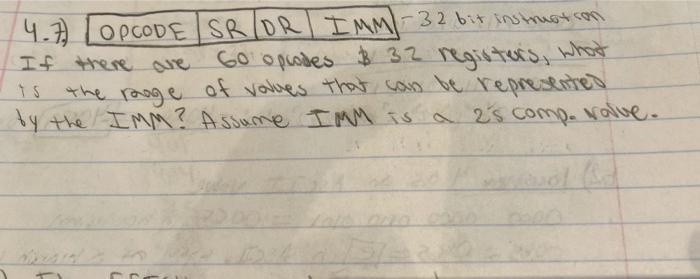 4.7) OPCODE SR DR IMM - 32 bit instruction
If there are 60 opcodes & 32 registers, what
is the range of values that can be represented
by the IMM? Assume IMM is a 2's comp. value.